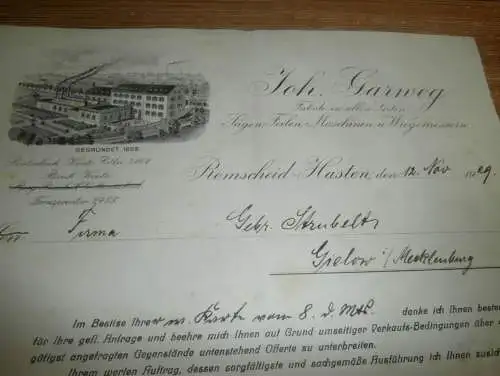 Joh. Garweg
Fabrik in allen Sorten
Sägen, Feilen, Maschinen u. Wiegemessern
GEGRÜNDET 1808
Remscheid-Hasten, den 12. Nov. 1929.
Bank Konto
Fernsprecher
An Firma
Gebr. Strubelt
Gielow i/Mecklenburg
Im Besitze Ihrer w. Karte vom 8. d. Mts. danke ich Ihnen besten
für Ihre gefl. Anfrage und beehre mich Ihnen auf Grund umseitiger Verkaufs-Bedingungen über
gütigst angefragten Gegenstände untenstehend Offerte zu unterbreiten.
Ihrem werten Auftrag, dessen sorgfältigste und sachgemäße Ausführung ich Ihnen